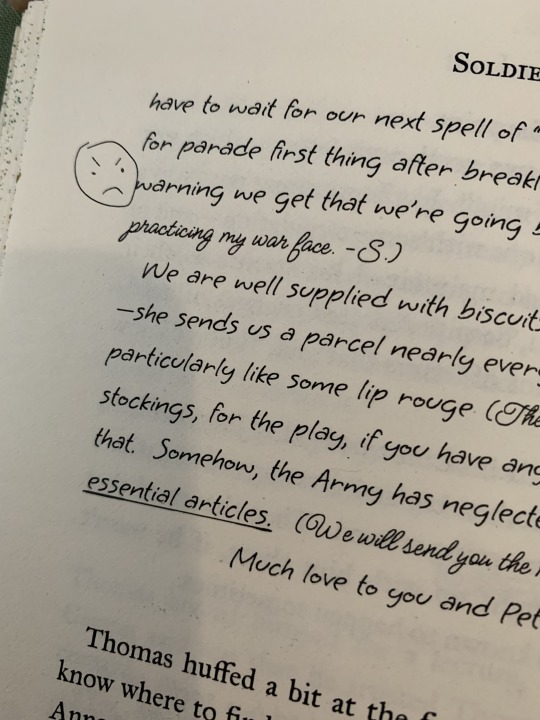 have to wait for our next spell of "
for parade first thing after
warning we get that we're going
practicing my war face. -S.)
We are well supplied with
—she sends us a parcel nearly
particularly like some lip rouge. (The
stockings, for the play, if you have
that. Somehow, the Army has
essential articles. (We will send you the
Much love to you and
Thomas huffed a bit at the
know where to